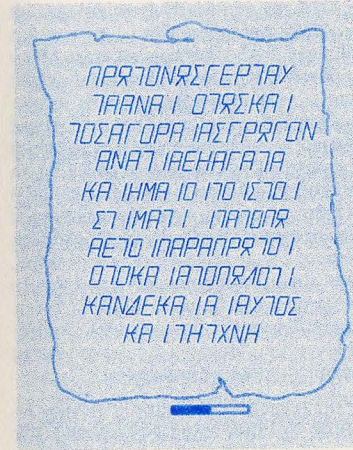 ΠΡΩΤΟΝΩΣΓΕΡΤΑΥ
ΤΑΑΝΑΙΟΤΩΣΚΑΙ
ΤΟΣΑΓΟΡΑΙΑΣΓΡΩΓΟΝ
ΑΝΑΤΙΑΕΗΑΓΑΤΑ
ΚΑΙΗΜΑΙΟΙΤΟΙΣΤΟΙ
ΣΤΙΜΑΤΙ ΙΤΑΤΟΠΩ
ΑΕΤΟΙΠΑΡΑΠΡΩΤΟΙ
ΟΤΟΚΑΙΑΤΟΠΩΛΟΤΙ
ΚΑΝΔΕΚΑΙΑΙΑΥΤΟΣ
ΚΑΙΤΗΤΧΝΗ